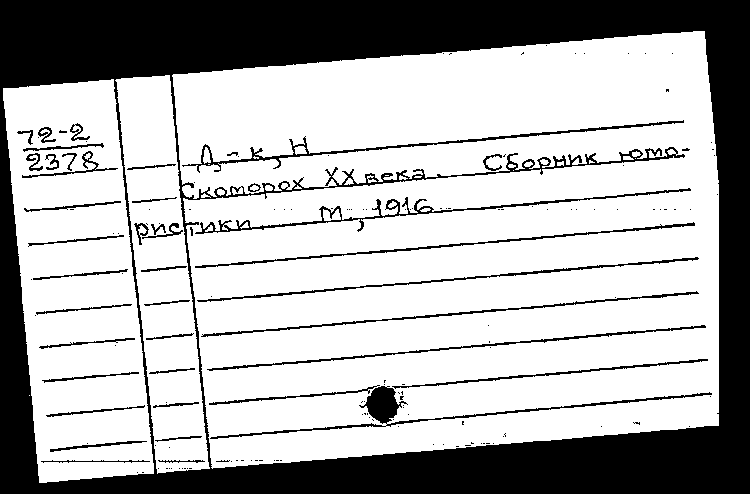 72-2
2378
Д-к, Н
Скоморох XX века. Сборник юмо-
ристики. М., 1916